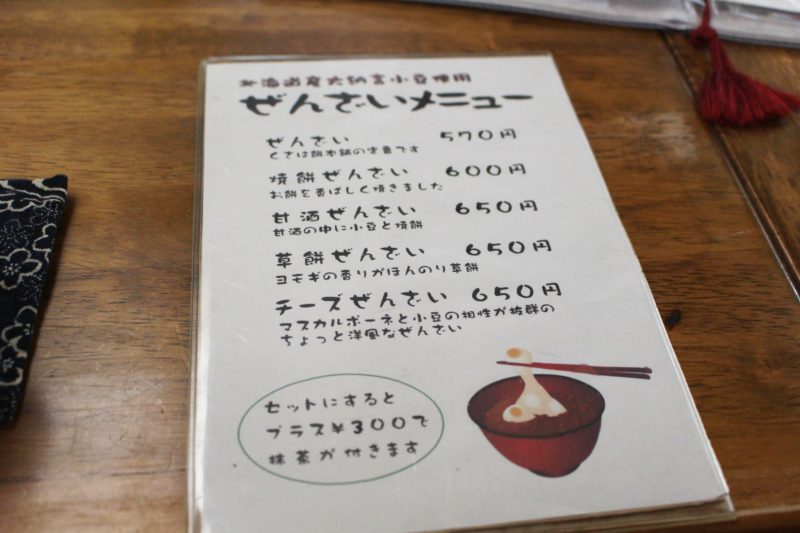 北海道産大納言小豆使用
ぜんざいメニュー
ぜんざい 570円
くさは餅本舗の定番です
焼餅ぜんざい 600円
お餅を香ばしく焼きました
甘酒ぜんざい 650円
甘酒の中に小豆と焼餅
草餅ぜんざい 650円
ヨモギの香りがほんのり草餅
チーズぜんざい 650円
マスカルポーネと小豆の相性が抜群の
ちょっと洋風なぜんざい
セットにすると
プラス¥300で
抹茶が付きます